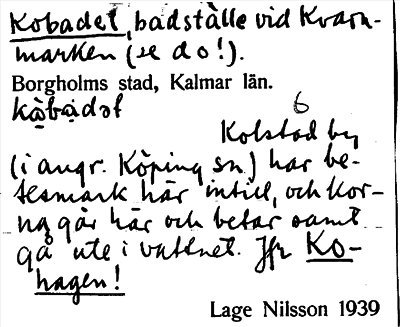 Kobadet, badställe vid Kvarn-
marken (se do!).
Borgholms stad, Kalmar län.
kò̱ba̱dət
6
Kolstad by
(i angr. Köping sn) har be-
tesmark här intill, och kor-
na går här och betar samt
gå ute i vattnet. Jfr Ko-
hagen!
Lage Nilsson 1939